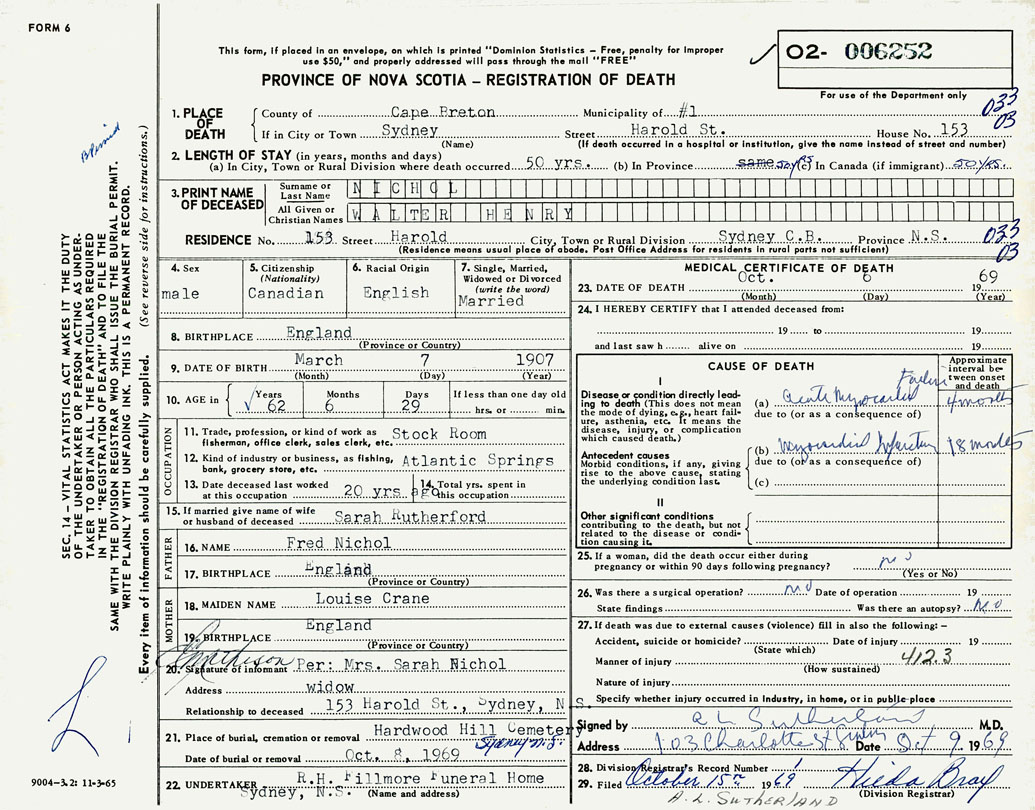 FORM 6
This form, if placed in an envelope, on which is printed "Dominion Statistics – Free, penalty for improper
use $50," and properly addressed will pass through the mail "FREE"
PROVINCE OF NOVA SCOTIA – REGISTRATION OF DEATH
02- 006252
For use of the Department only
033
03
1. PLACE OF DEATH
County of Cape Breton Municipality of #1
If in City or Town Sydney Street Harold St. House No. 153
(Name) (If death occurred in a hospital or institution, give the name instead of street and number)
2. LENGTH OF STAY (in years, months and days)
(a) In City, Town or Rural Division where death occurred 50 yrs. (b) In Province same 50 yrs (c) In Canada (if immigrant) 50 yrs.
3. PRINT NAME OF DECEASED
Surname or Last Name NICHOL
All Given or Christian Names WALTER HENRY
RESIDENCE No. 153 Street Harold City, Town or Rural Division Sydney C.B. Province N.S.
(Residence means usual place of abode. Post Office Address for residents in rural parts not sufficient)
033
03
4. Sex
male
5. Citizenship (Nationality)
Canadian
6. Racial Origin
English
7. Single, Married, Widowed or Divorced (write the word)
Married
8. BIRTHPLACE England
(Province or Country)
9. DATE OF BIRTH March 7 1907
(Month) (Day) (Year)
10. AGE in Years 62 Months 6 Days 29 If less than one day old
hrs. or min.
OCCUPATION
11. Trade, profession, or kind of work as fisherman, office clerk, sales clerk, etc. Stock Room
12. Kind of industry or business, as fishing, bank, grocery store, etc. Atlantic Springs
13. Date deceased last worked at this occupation 20 yrs ago
14. Total yrs. spent in this occupation
15. If married give name of wife or husband of deceased Sarah Rutherford
FATHER
16. NAME Fred Nichol
17. BIRTHPLACE England
(Province or Country)
MOTHER
18. MAIDEN NAME Louise Crane
19. BIRTHPLACE England
(Province or Country)
20. Signature of informant Per: Mrs. Sarah Nichol
Address widow
Relationship to deceased 153 Harold St., Sydney, N.S.
21. Place of burial, cremation or removal Hardwood Hill Cemetery
Sydney N.S.
Date of burial or removal Oct. 8, 1969
22. UNDERTAKER R.H. Fillmore Funeral Home
Sydney, N.S. (Name and address)
MEDICAL CERTIFICATE OF DEATH
23. DATE OF DEATH Oct. 6 1969
(Month) (Day) (Year)
24. I HEREBY CERTIFY that I attended deceased from:
19 to 19
and last saw h alive on 19
CAUSE OF DEATH
Approximate interval between onset and death
I
Disease or condition directly leading to death (This does not mean the mode of dying, e.g., heart failure, asthenia, etc. It means the disease, injury, or complication which caused death.)
(a) Acute Myocardial Failure 4 months
due to (or as a consequence of)
Antecedent causes
Morbid conditions, if any, giving rise to the above cause, stating the underlying condition last.
(b) Myocardial Infarction 18 months
due to (or as a consequence of)
(c)
II
Other significant conditions
contributing to the death, but not related to the disease or condition causing it.
25. If a woman, did the death occur either during pregnancy or within 90 days following pregnancy? no
(Yes or No)
26. Was there a surgical operation? no Date of operation 19
State findings Was there an autopsy? No
27. If death was due to external causes (violence) fill in also the following: –
Accident, suicide or homicide? Date of injury 19
(State which)
412.3
Manner of injury
(How sustained)
Nature of injury
Specify whether injury occurred in industry, in home, or in public place
Signed by A L Sutherland M.D.
Address 103 Charlotte St Sydney Date Oct 9 1969
28. Division Registrar's Record Number
29. Filed October 15th 1969 Hilda Bray
(Division Registrar)
A. L. SUTHERLAND
SEC. 14 – VITAL STATISTICS ACT MAKES IT THE DUTY
OF THE UNDERTAKER OR PERSON ACTING AS UNDER-
TAKER TO OBTAIN ALL THE PARTICULARS REQUIRED
IN THE "REGISTRATION OF DEATH" AND TO FILE THE
SAME WITH THE DIVISION REGISTRAR WHO SHALL ISSUE THE BURIAL PERMIT.
WRITE PLAINLY WITH UNFADING INK. THIS IS A PERMANENT RECORD.
Every item of information should be carefully supplied. (See reverse side for instructions.)
9004-3.2: 11-3-65